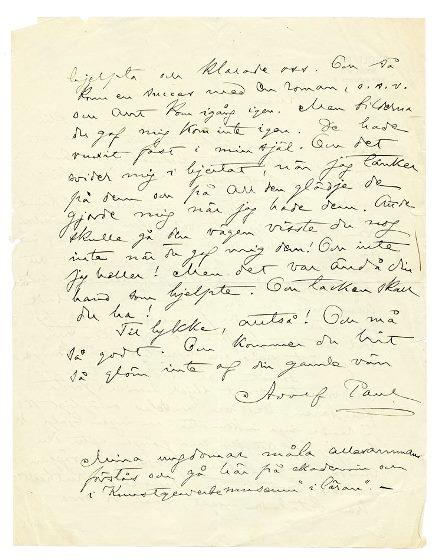 hjelpta och klarade oss. Och så
kom en succes med en roman, o.s.v.
och allt kom igång igen. Men bilderna
du gaf mig kom inte igen. De hade
vuxit fast i min själ. Och det
vrider mig i hjertat, när jag tänker
på dem och på all den glädje de
gjorde mig när jag hade dem.
skulle gå den vägen visste du nog
inte när du gaf mig dem! Och inte
jag heller! Men det var ändå din
hand som hjelpte. Och tacken skall
du ha!
Till lykke, alltså! Och må
så godt. Och kommer du hit
så glöm inte af din gamle vän
Adolf Paul
Mina ungdomar måla allesammans
förstås och gå här på akademin och
i "Kunstgewerbemuseum" i läran". –